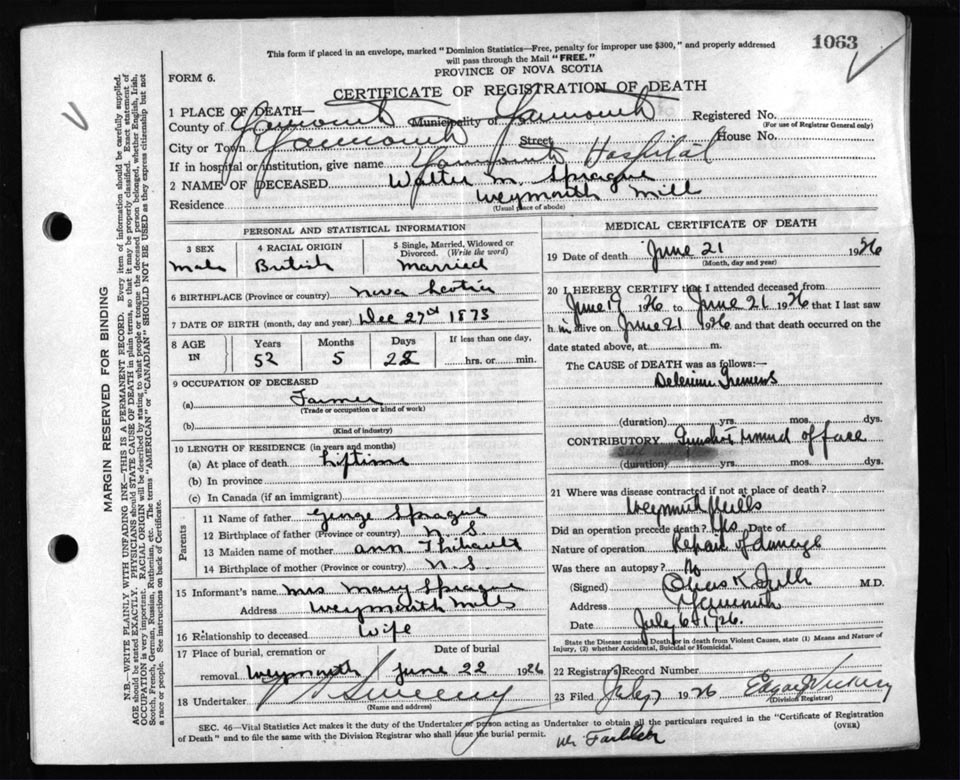 1063
This form if placed in an envelope, marked "Dominion Statistics—Free, penalty for improper use $300," and properly addressed
will pass through the Mail "FREE."
PROVINCE OF NOVA SCOTIA
FORM 6.
CERTIFICATE OF REGISTRATION OF DEATH
1 PLACE OF DEATH—
County of Yarmouth Municipality of Yarmouth Registered No.
(For use of Registrar General only)
City or Town Yarmouth Street House No.
If in hospital or institution, give name Yarmouth Hospital
2 NAME OF DECEASED Walter M. Sprague
Residence Weymouth Mill
(Usual place of abode)
PERSONAL AND STATISTICAL INFORMATION
3 SEX 4 RACIAL ORIGIN 5 Single, Married, Widowed or
Divorced. (Write the word)
Male British Married
6 BIRTHPLACE (Province or country) Nova Scotia
7 DATE OF BIRTH (month, day and year) Dec 27th 1873
8 AGE IN Years Months Days If less than one day,
52 5 25 hrs. or min.
9 OCCUPATION OF DECEASED
(a) Farmer
(Trade or occupation or kind of work)
(b)
(Kind of industry)
10 LENGTH OF RESIDENCE (in years and months)
(a) At place of death Liftime
(b) In province
(c) In Canada (if an immigrant)
Parents
11 Name of father George Sprague
12 Birthplace of father (Province or country) N.S.
13 Maiden name of mother Ann Thibault
14 Birthplace of mother (Province or country) N.S.
15 Informant's name Mrs Mary Sprague
Address Weymouth Mills
16 Relationship to deceased Wife
17 Place of burial, cremation or Date of burial
removal Weymouth June 22 1926
18 Undertaker Sweeny
(Name and address)
MEDICAL CERTIFICATE OF DEATH
19 Date of death June 21 1926
(Month, day and year)
20 I HEREBY CERTIFY that I attended deceased from
June 17 1926 to June 21 1926 that I last saw
h im alive on June 21 1926 and that death occurred on
date stated above, at m.
The CAUSE OF DEATH was as follows:—
Delerium Tremens
(duration) yrs. mos. dys.
CONTRIBUTORY Gunshot wound of face
(duration) yrs. mos. dys.
21 Where was disease contracted if not at place of death?
Weymouth Mills
Did an operation precede death? Yes Date of
Nature of operation Repair of damage
Was there an autopsy? No
(Signed) M.D.
Address Yarmouth
Date July 6 1926.
State the Disease causing Death, or in death from Violent Causes, state (1) Means and Nature of
Injury, (2) whether Accidental, Suicidal or Homicidal.
22 Registrar's Record Number
23 Filed July 7 1926 Edgar Vickery
(Division Registrar)
SEC. 46—Vital Statistics Act makes it the duty of the Undertaker or person acting as Undertaker to obtain all the particulars required in the "Certificate of Registration
of Death" and to file the same with the Division Registrar who shall issue the burial permit. (OVER)
MARGIN RESERVED FOR BINDING
N.B.—WRITE PLAINLY WITH UNFADING INK—THIS IS A PERMANENT RECORD. Every item of information should be carefully supplied.
AGE should be stated EXACTLY. PHYSICIANS should STATE CAUSE OF DEATH in plain terms, so that it may be properly classified. Exact statement of
OCCUPATION is very important. RACIAL ORIGIN will be described by stating to what people or tongue the deceased person belonged, whether English, Irish,
Scotch, French, German, Russian, Ruthenian, etc. The terms "AMERICAN" or "CANADIAN" SHOULD NOT BE USED as they express citizenship but not
a race or people. See instructions on back of Certificate.